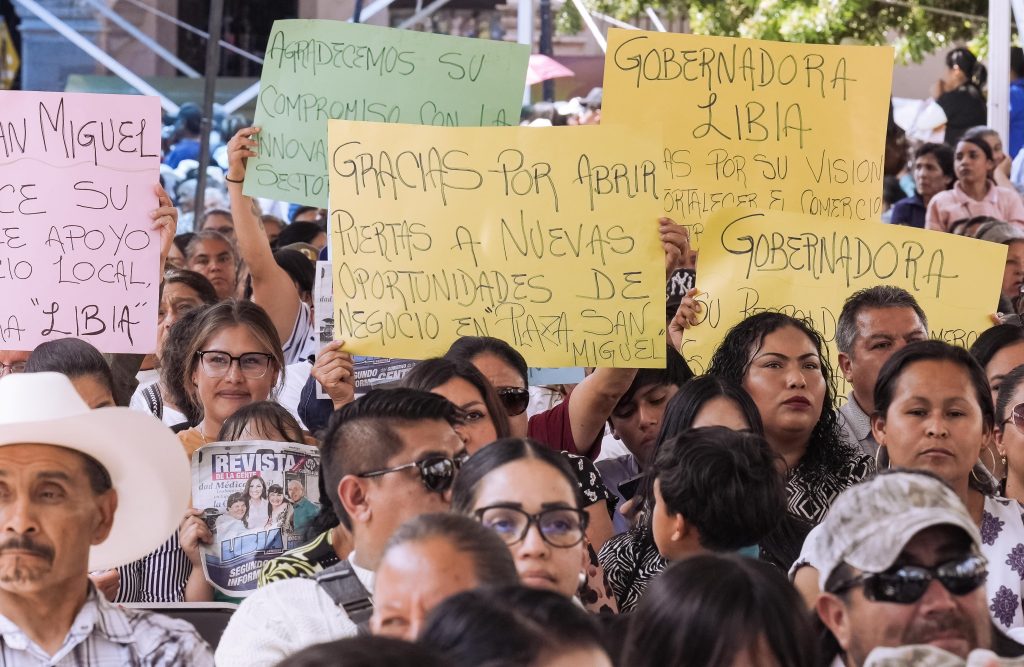 AN MIGUEL
CE SU
E APOYO
IO LOCAL,
A "LIBIA"
AGRADECEMOS SU
COMPROMISO CON LA
INNOVA
SECTOR
GRACIAS POR ABRIR
PUERTAS A NUEVAS
OPORTUNIDADES DE
NEGOCIO EN "PLAZA SAN
MIGUEL
GOBERNADORA
LIBIA
AS POR SU VISION
FORTALECER EL COMERCIO
GOBERNADORA
REVISTA
DE LA GENTE
LIBIA
SEGUNDO
INFORME